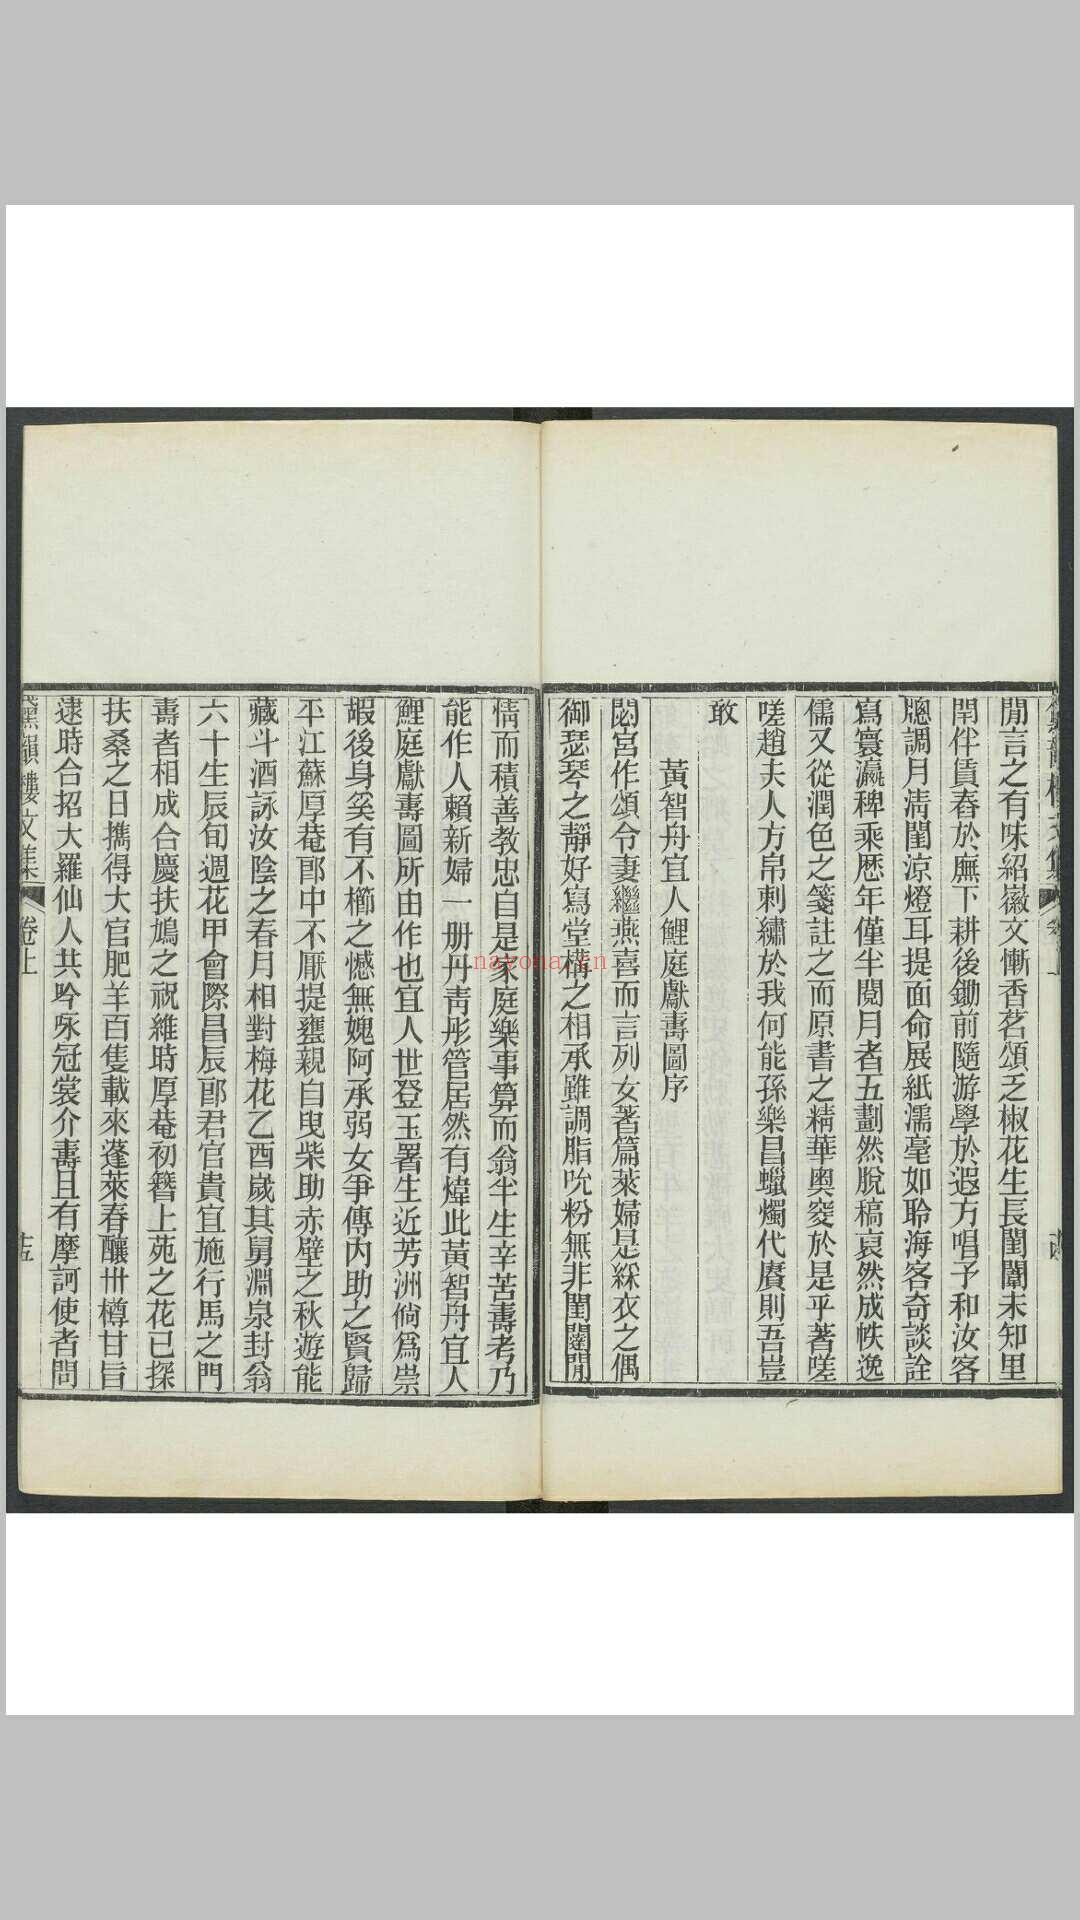 閒言之有味紹嶽文慚香茗頌乏椒花生長閨闈未知里
閈伴賃舂於廡下耕後鋤前隨游學於遐方唱予和汝客
牕調月清閨涼燈耳提面命展紙濡毫如聆海客奇談詮
寫寰瀛稗乘歴年僅半閱月者五劃然脫稿裒然成帙逸
儒又從潤色之箋註之而原書之精華奧窔於是乎著嗟
嗟趙夫人方帛刺繡於我何能孫樂昌蠟燭代賡則吾豈
敢
黃智舟宜人鯉庭獻壽圖序
閟宮作頌令妻繼燕喜而言列女著篇萊婦是綵衣之偶
御瑟琴之靜好寫堂構之相承雖調脂吮粉無非閨閫閒
情而積善教忠自是家庭樂事算而翁半生辛苦壽考乃
能作人賴新婦一册丹青彤管居然有煒此黃智舟宜人
鯉庭獻壽圖所由作也宜人世登玉署生近芳洲倘爲崇
嘏後身奚有不櫛之憾無媿阿承弱女爭傳內助之賢歸
平江蘇厚菴郎中不厭提甕親自曳柴助赤壁之秋遊能
藏斗酒詠汝陰之春月相對梅花乙酉歲其舅淵泉封翁
六十生辰旬週花甲會際昌辰郎君官貴宜施行馬之門
壽者相成合慶扶鳩之祝維時厚菴初簪上苑之花已探
扶桑之日攜得大官肥羊百隻載來蓬萊春釀卅樽甘旨
逮時合招大羅仙人共吟霓冠裳介壽且有摩訶使者問
韻樓文集
卷上
十五
nayona.cn